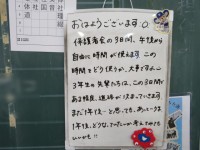 おはようございます。
保護者会の3日間、午後から
自由に時間が使えます。この
時間をどう使うか、大事ですよ。
3年生の先輩たちは、この3日間で
ある程度、進路が決まっていきます。
まだ1年後…と思っても、あっという間
1年後、どうなっていたいか考えてみても
いいかも!!